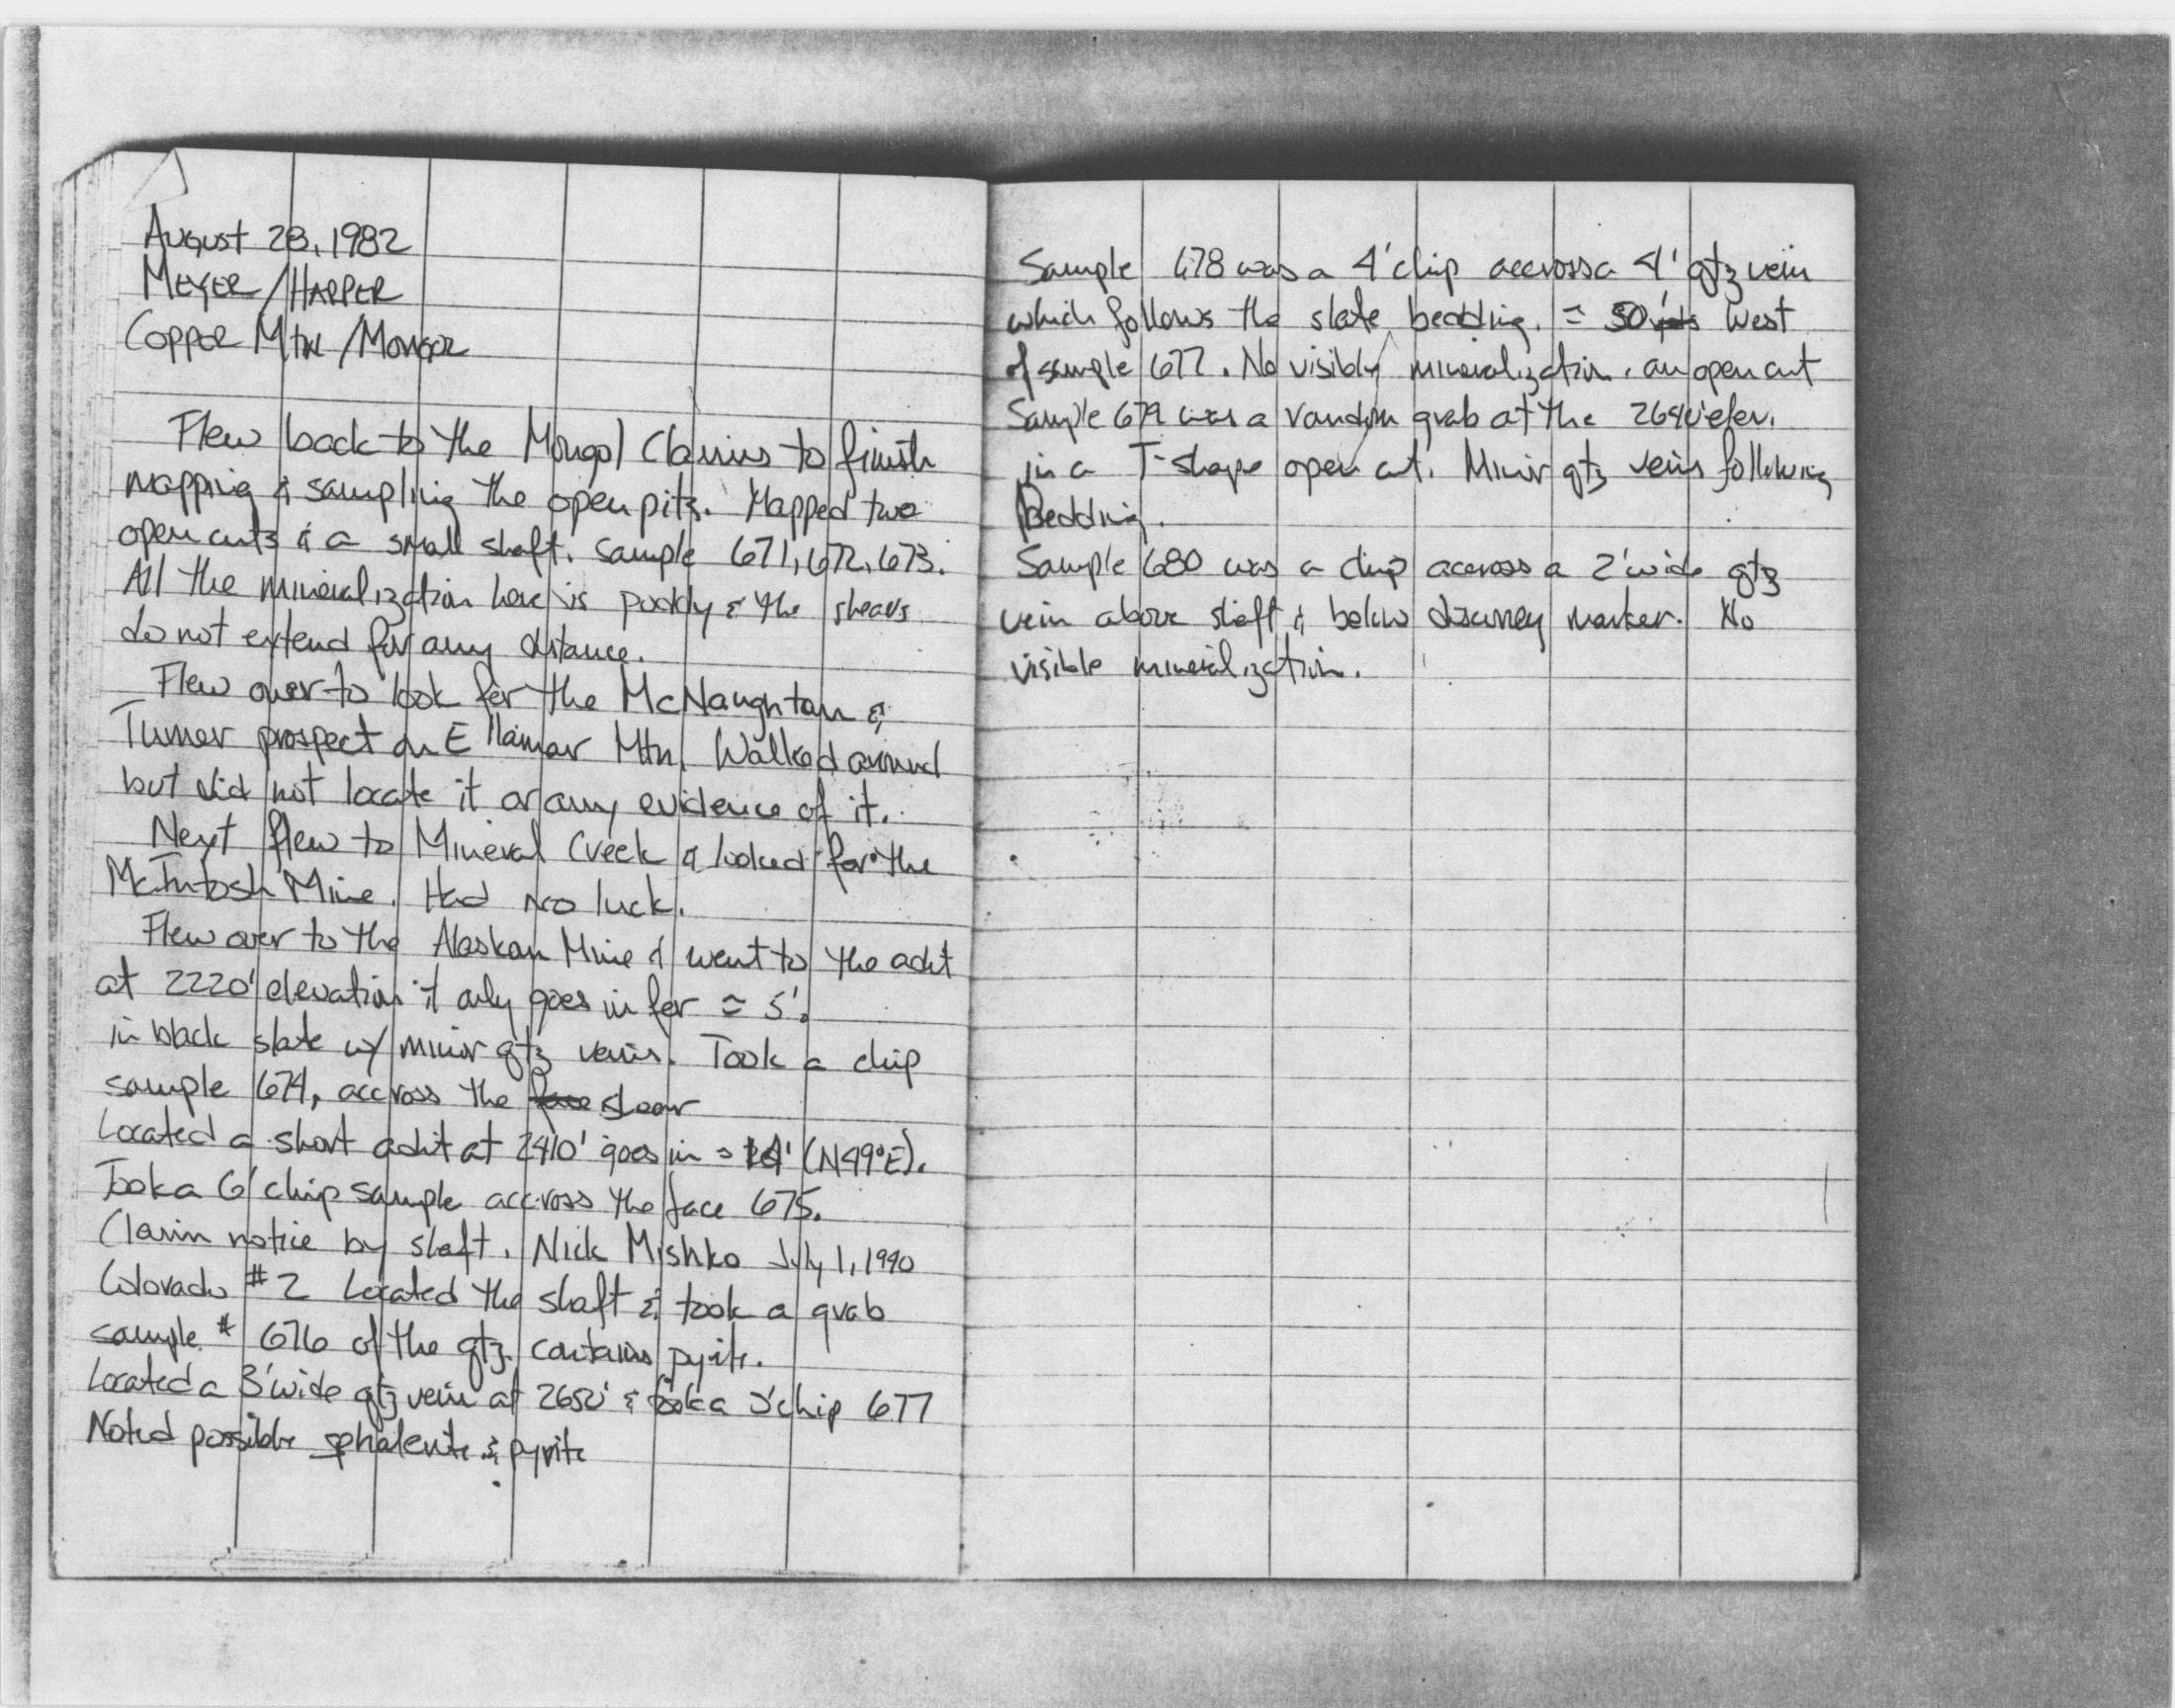 August 28, 1982
MEYER/HARPER
COPPER MTN/MONGOL
Flew back to the Mongol Claims to finish
mapping & sampling the open pits. Mapped two
open cuts & a small shaft. sample 671, 672, 673.
All the mineralization here is poddy & the shears
do not extend for any distance.
Flew over to look for the McNaughton &
Turner prospect on Ellamar Mtn. Walked around
but did not locate it or any evidence of it.
Next flew to Mineral Creek & looked for the
McIntosh Mine. Had no luck.
Flew over to the Alaskan Mine & went to the adit
at 2220' elevation it only goes in for ≈ 5'.
in black slate w/ minor qtz veins. Took a chip
sample 674, accross the face shear
Located a short adit at 2410' goes in ≈ (N49°E).
Took a 6' chip sample accross the face 675.
Claim notice by shaft. Nick Mishko July 1, 1990
Colorado #2 Located the shaft & took a grab
sample # 676 of the qtz. contains pyrite.
Located a 3' wide qtz vein at 2650' & took a 3' chip 677
Noted possible sphalerite & pyrite
Sample 678 was a 4' chip accross a 4' qtz vein
which follows the slate bedding. ≈ 50' yds West
of sample 677. No visibly mineralization. an open cut
Sample 679 was a random grab at the 2640' elev.
in a T-shape open cut. Minor qtz veins following
Bedding.
Sample 680 was a chip accross a 2' wide qtz
vein above shaft & below discovery marker. No
visible mineralization.